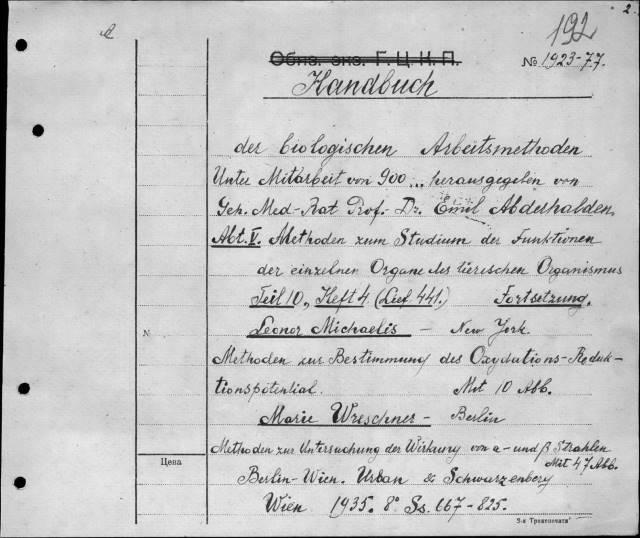 2.
192
Обяз. экз. Г. Ц. К. П.
№ 1923-77.
Handbuch
der biologischen Arbeitsmethoden
Unter Mitarbeit von 900 ... herausgegeben von
Geh. Med-Rat Prof. Dr. Emil Abderhalden
Abt. V. Methoden zum Studium der Funktionen
der einzelnen Organe des tierischen Organismus
Teil 10, Heft 4 (Lief. 441.) Fortsetzung.
Leonor Michaelis - New York.
N
Methoden zur Bestimmung des Oxydations-Reduk-
tionspotential. Mit 10 Abb.
Marie Wreschner - Berlin
Methoden zur Untersuchung der Wirkung von α- und β Strahlen
Mit 47 Abb.
Цена
Berlin-Wien. Urban & Schwarzenberg
Wien 1935. 8° Ss. 667-825.
3-я Трансвечать